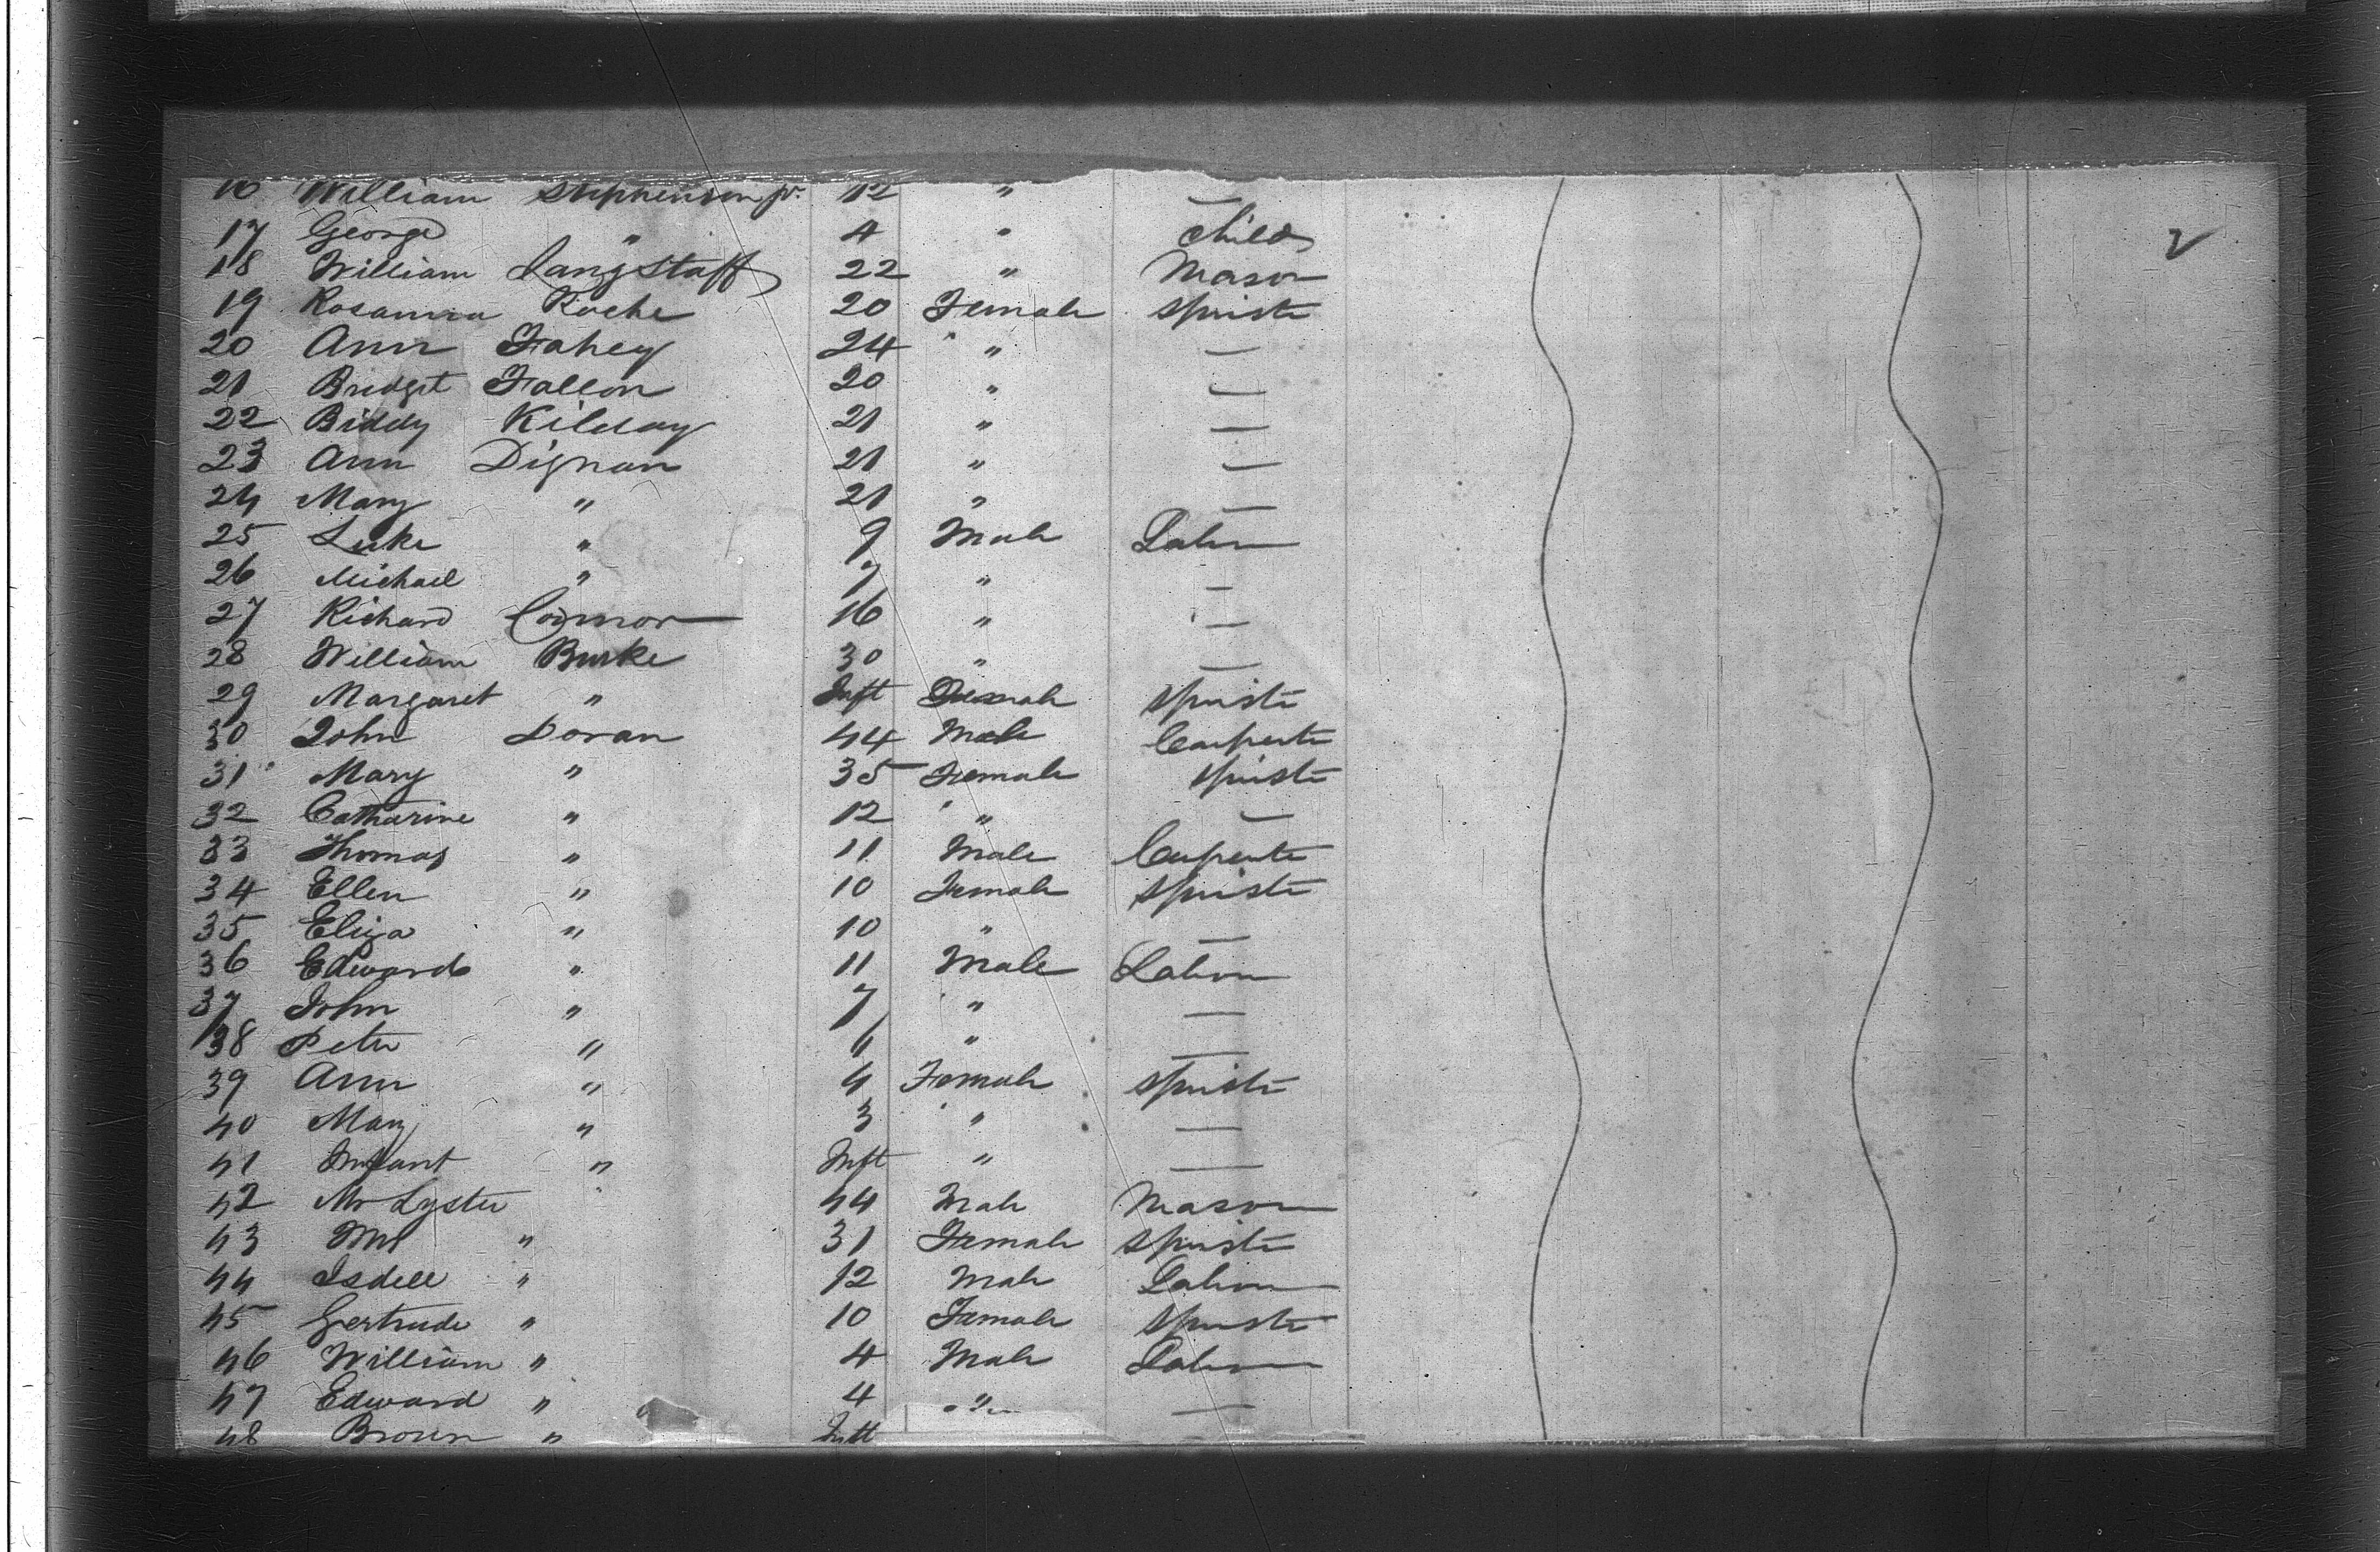 16 William Stephenson jr. 12 "
17 George " 4 " Child
18 William Langstaff 22 " Mason
19 Rosanna Roche 20 Female Spinstr
20 Ann Fahey 24 " —
21 Bridget Fallon 20 " —
22 Biddy Kilday 21 " —
23 Ann Dignan 21 " —
24 Mary " 21 " —
25 Luke " 9 Male Labour
26 Michael " 7 " —
27 Richard Connor 16 " —
28 William Burke 30 " —
29 Margaret " Inft Female Spinstr
30 John Doran 44 Male Carpentr
31 Mary " 35 Female Spinstr
32 Catharine " 12 " —
33 Thomas " 11 Male Carpentr
34 Ellen " 10 Female Spinstr
35 Eliza " 10 " —
36 Edward " 11 Male Labour
37 John " 7 " —
38 Peter " 6 " —
39 Ann " 4 Female Spinstr
40 Mary " 3 " —
41 Infant " Inft " —
42 Mr Lyster 44 Male Mason
43 Mrs " 31 Female Spinstr
44 Isdell " 12 Male Labour
45 Gertrude " 10 Female Spinstr
46 William " 4 Male Labour
47 Edward " 4 " —
48 " Inft